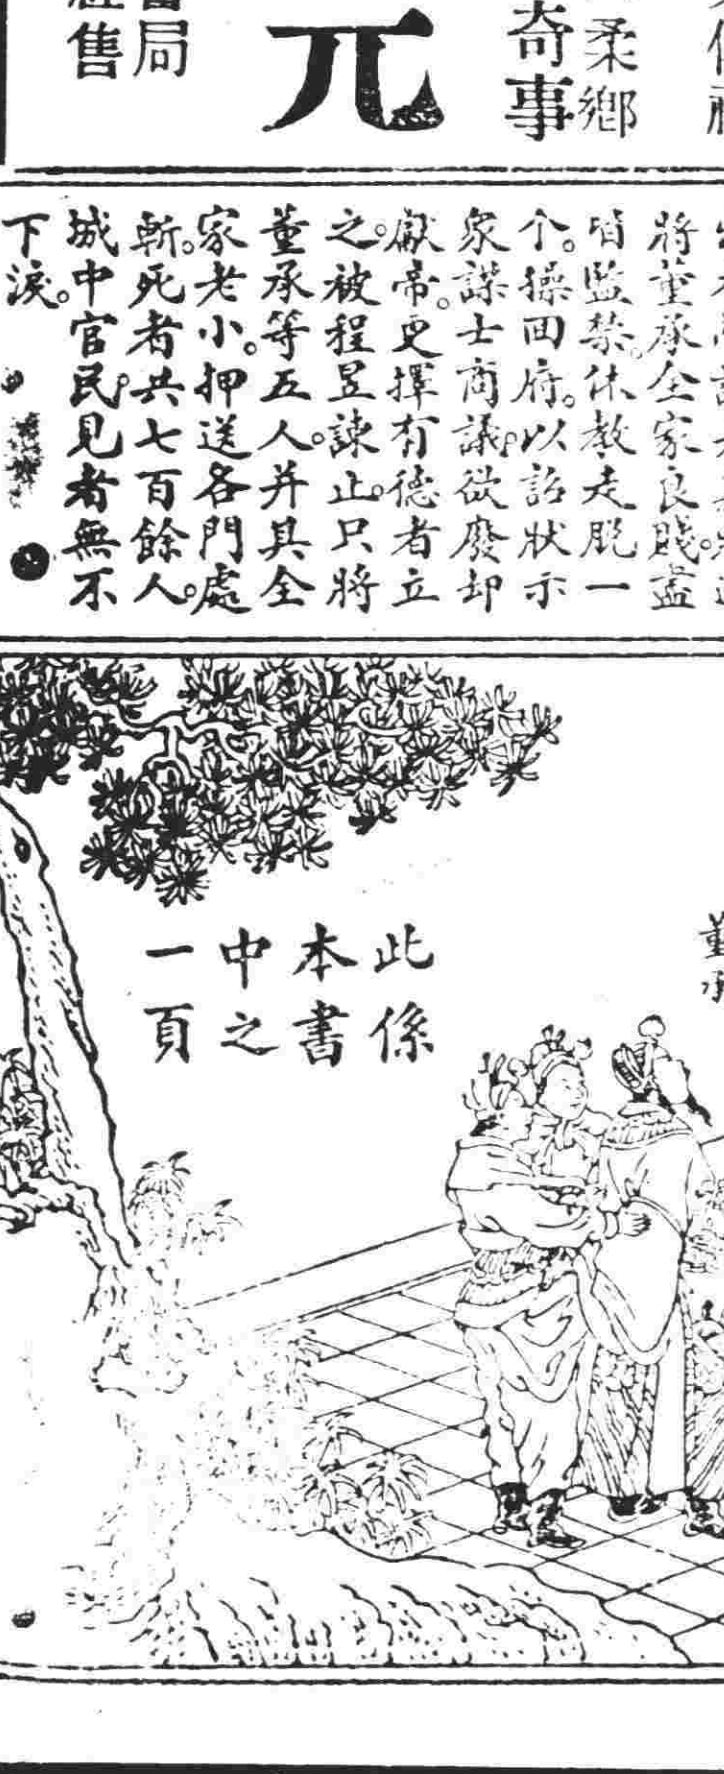 柔鄉
奇事
元
書局
售
將董承全家良賤。盡
皆監禁。休教走脫一
个。操回府。以詔狀示
衆謀士商議。欲廢却
獻帝。更擇有德者立
之。被程昱諫止。只將
董承等五人。并其全
家老小。押送各門處
斬。死者共七百餘人。
城中官民。見者無不
下淚。
董承
此係
本書
中之
一頁